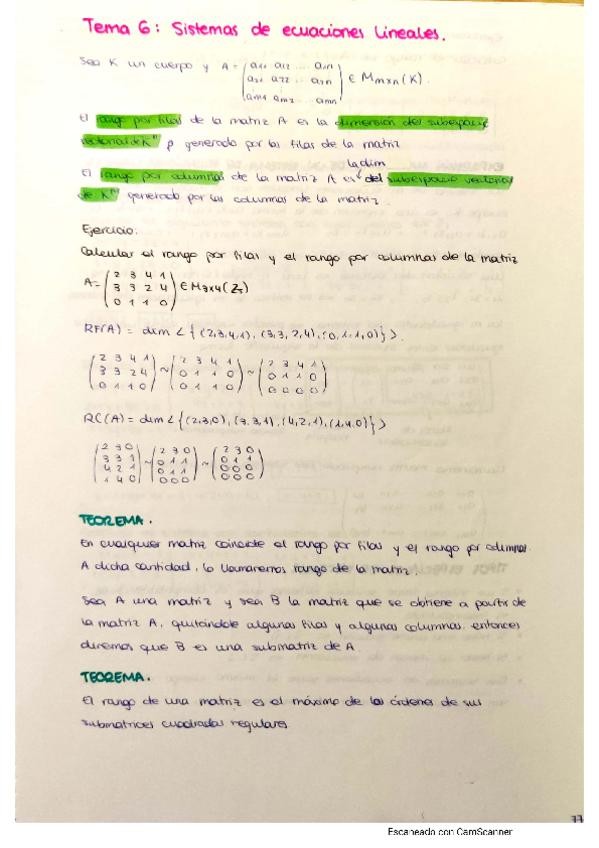 Tema 6: Sistemas de ecuaciones lineales.
Sea K un cuerpo y A = (a11 a12 ... a1n
a21 a22 ... a2n
am1 am2 ... amn) ∈ Mmxn(K).
El rango por filas de la matriz A es la dimension del subespacio
vectorial de Kⁿ generado por las filas de la matriz
la dim
El rango por columnas de la matriz A es del subespacio vectorial
de Kᵐ generado por las columnas de la matriz.
Ejercicio:
Calcular el rango por filas y el rango por columnas de la matriz
A= (2 3 4 1
3 3 2 4
0 1 1 0) ∈ M3x4(Z5)
RF(A) = dim < { (2,3,4,1), (3,3,2,4), (0,1,1,0)} >.
(2 3 4 1
3 3 2 4
0 1 1 0) ~ (2 3 4 1
0 1 1 0
0 1 1 0) ~ (2 3 4 1
0 1 1 0
0 0 0 0)
RC(A) = dim < {(2,3,0), (3,3,1), (4,2,1), (1,4,0)} >
(2 3 0
3 3 1
4 2 1
1 4 0) ~ (2 3 0
0 1 1
0 1 1
0 0 0) ~ (2 3 0
0 1 1
0 0 0
0 0 0)
TEOREMA.
En cualquier matriz coincide el rango por filas y el rango por columnas.
A dicha cantidad, lo llamaremos rango de la matriz.
Sea A una matriz y sea B la matriz que se obtiene a partir de
la matriz A, quitándole algunas filas y algunas columnas, entonces
diremos que B es una submatriz de A.
TEOREMA.
El rango de una matriz es el máximo de los órdenes de sus
submatrices cuadradas regulares.
77
Escaneado con CamScanner